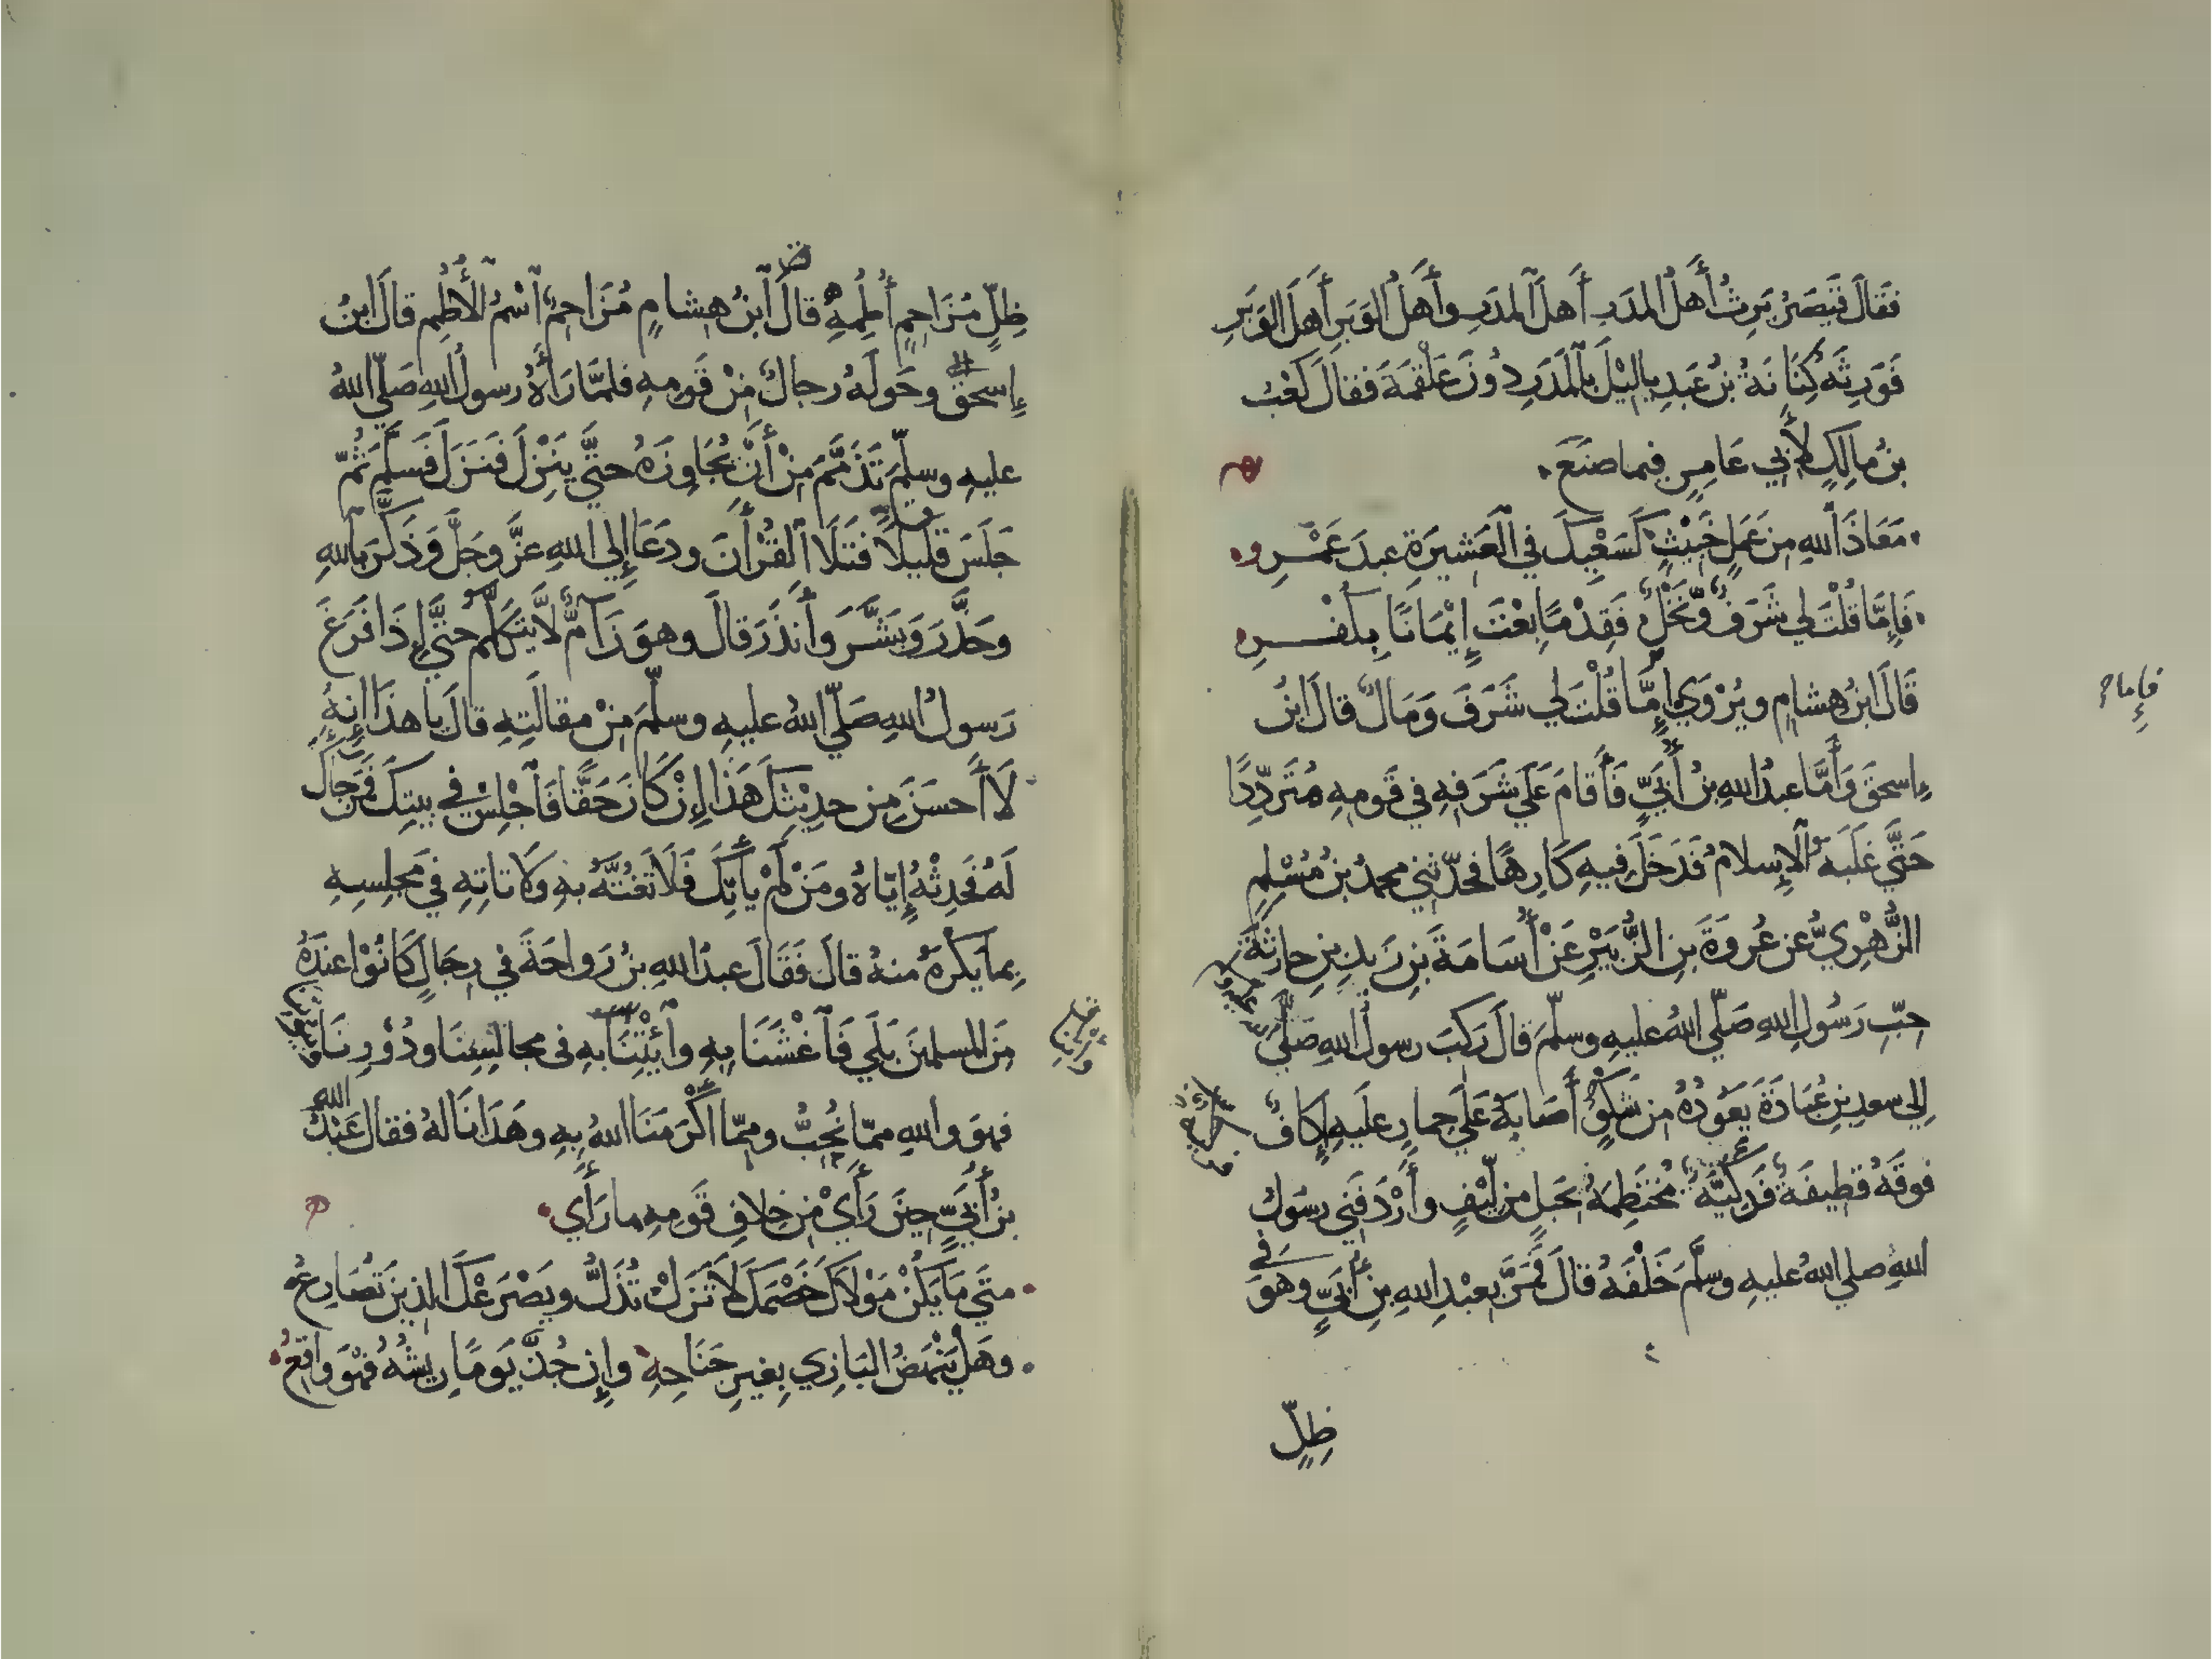 فَقَالَ قَيْصَرُ يَرِثُ أَهلُ المدَرِ أَهلَ المدَرِ وأَهلُ الوَبَرِ أَهلَ الوَبَرِ
فَوَرِثَهُ كِنَانَةُ بنُ عَبدِ يالِيْلَ بِالمَدَرِ دُوْنَ عَلْقَمَةَ فقالَ كَعْبُ
بنُ مالِكٍ لأَبِي عَامِرٍ فيما صَنَعَ
مَعَاذَ اللهِ مِن عَمَلٍ خَبِيْثٍ كَسَعْيِكَ فِي العَشِيرَةِ عبدَ عَمْرِو
فَإِمَّا قُلْتَ لي شَرَفٌ وَّنَخْلٌ فَقِدْمًا بِعْتَ إِيْمَانًا بِكُفْرِ
قَالَ ابنُ هِشامٍ ويُرْوَى إِمَّا قُلْتَ لي شَرَفٌ وَمَالٌ قالَ ابنُ
إسحقَ وَأَمَّا عبدُ اللهِ بنُ أُبَيٍّ فَأَقامَ عَلَى شَرَفِهِ فِي قَومِهِ مُتَرَدِّدًا
حَتَّى غَلَبَهُ الإِسلامُ فَدَخَلَ فِيهِ كَارِهًا فحدّثني محمدُ بنُ مُسْلِمٍ
الزُّهْرِيُّ عن عُروَةَ بنِ الزُّبَيْرِ عَنْ أُسَامَةَ بنِ زَيدِ بنِ حارِثَةَ
حِبِّ رَسُولِ اللهِ صَلَّى اللهُ عليهِ وسلّمَ قالَ رَكِبَ رسولُ اللهِ صَلَّى
إِلى سعدِ بنِ عُبَادَةَ يَعُودُهُ مِن شَكْوٍ أَصَابَهُ عَلَى حِمارٍ عَلَيهِ إِكَافٌ
فوقَهُ قَطِيفَةٌ فَدَكِيَّةٌ مُخْتَطِمَةٌ بحَبلٍ مِن لِيْفٍ وأَرْدَفَنِي رسُولُ
اللهِ صلى اللهُ عليهِ وسلَّمَ خَلْفَهُ قالَ فَمَرَّ بِعَبْدِ اللهِ بنِ أُبَيٍّ وهوَ فِي
ظِلِّ
فإما
ظِلِّ مُزَاحِمٍ أُطُمِهِ قالَ ابنُ هِشامٍ مُزَاحِمٌ اسْمُ الأُطُمِ قالَ ابنُ
إِسحقَ وحَولَهُ رجالٌ مِنْ قَومِهِ فلمَّا رَأَهُ رسولُ اللهِ صَلّى اللهُ
عليهِ وسلّمَ تَذَمَّمَ مِنْ أَنْ يُجَاوِزَهُ حتَّى يَنْزِلَ فَنَزَلَ فَسَلَّمَ ثُمّ
جَلَسَ قليلًا فَتَلَا القُرْأنَ ودَعَا إِلى اللهِ عزَّ وجَلَّ وَذَكَّرَ باللهِ
وحَذَّرَ وَبَشَّرَ وأَنذَرَ قالَ وهوَ زَامٌّ لَّا يَتَكَلَّمُ حتَّى إِذَا فَرَغَ
رَسولُ اللهِ صَلّى اللهُ عليهِ وسلّمَ مِنْ مقالَتِهِ قالَ يا هذَا إِنهُ
لَا أَحسَنَ مِن حدِيْثِكَ هَذَا إِنْ كَانَ حَقًّا فَاجْلِسْ فِي بيتِكَ فَمَن جاءَكَ
لَهُ فَحَدِثْهُ إِيّاهُ ومَنْ لَمْ يأتِكَ فَلَا تَغُتَّهُ بهِ وَلَا تاتِهِ فِي مَجلِسِهِ
بِما يَكرَهُ منهُ قالَ فَقَالَ عبدُ اللهِ بنُ رَواحَةَ فِي رِجَالٍ كَانُوْا عِندَهُ
مِنَ المسلمينَ بَلَى فَاغْشَنَا بِهِ وائْتِنَا بهِ فى مجالِسِنَا ودُوْرِنَا
فهوَ واللهِ ممّا نُحِبُّ وممّا أَكْرَمَنَا اللهُ بِهِ وهَدَانَا لهُ فقالَ عَبْدُ اللهِ
بنُ أُبَيٍّ حِيْنَ رَأَى مِن خِلافِ قَومِهِ ما رَأَى
متَى مَا يَكُنْ مَوْلَاكَ خَصْمَكَ لَا تَزَلْ تُذَلُّ ويَصْرَعْكَ الذينَ تُصَارِعُ
وَهَل يَنْهَضُ البَازِي بِغيرِ جَنَاحِهِ وإِن جُذَّ يَومًا رِيشُهُ فَهْوَ واقِعُ